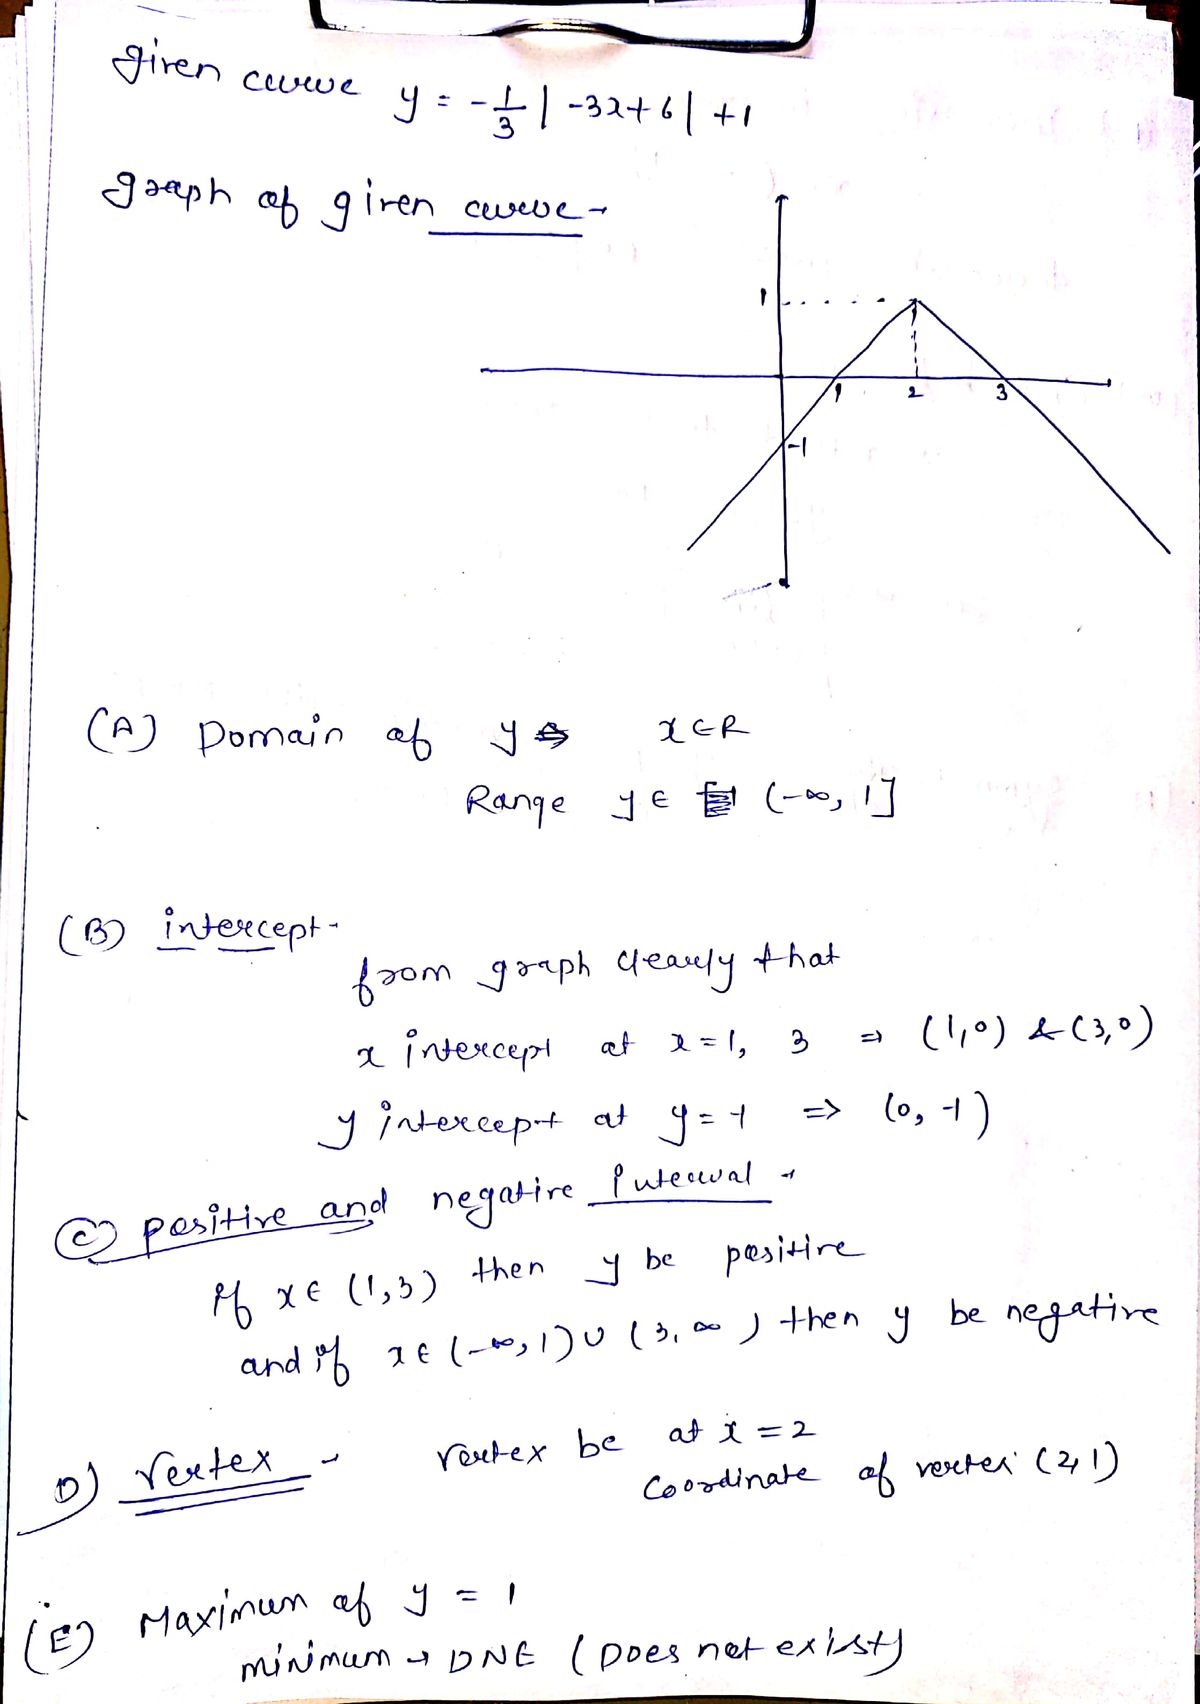 given curve y = -1/3 | -3x+6 | +1
graph of given curve -
1
1 2 3
-1
(A) Domain of y x∈R
Range y ∈ (-∞, 1]
(B) intercept -
from graph clearly that
x intercept at x = 1, 3 ⇒ (1,0) & (3,0)
y intercept at y = -1 => (0, -1)
(C) positive and negative interval -
if x ∈ (1,3) then y be positive
and if x ∈ (-∞, 1) ∪ (3, ∞) then y be negative
D) vertex - vertex be at x = 2
coordinate of vertex (2,1)
(E) Maximum of y = 1
minimum → DNE (Does not exist)